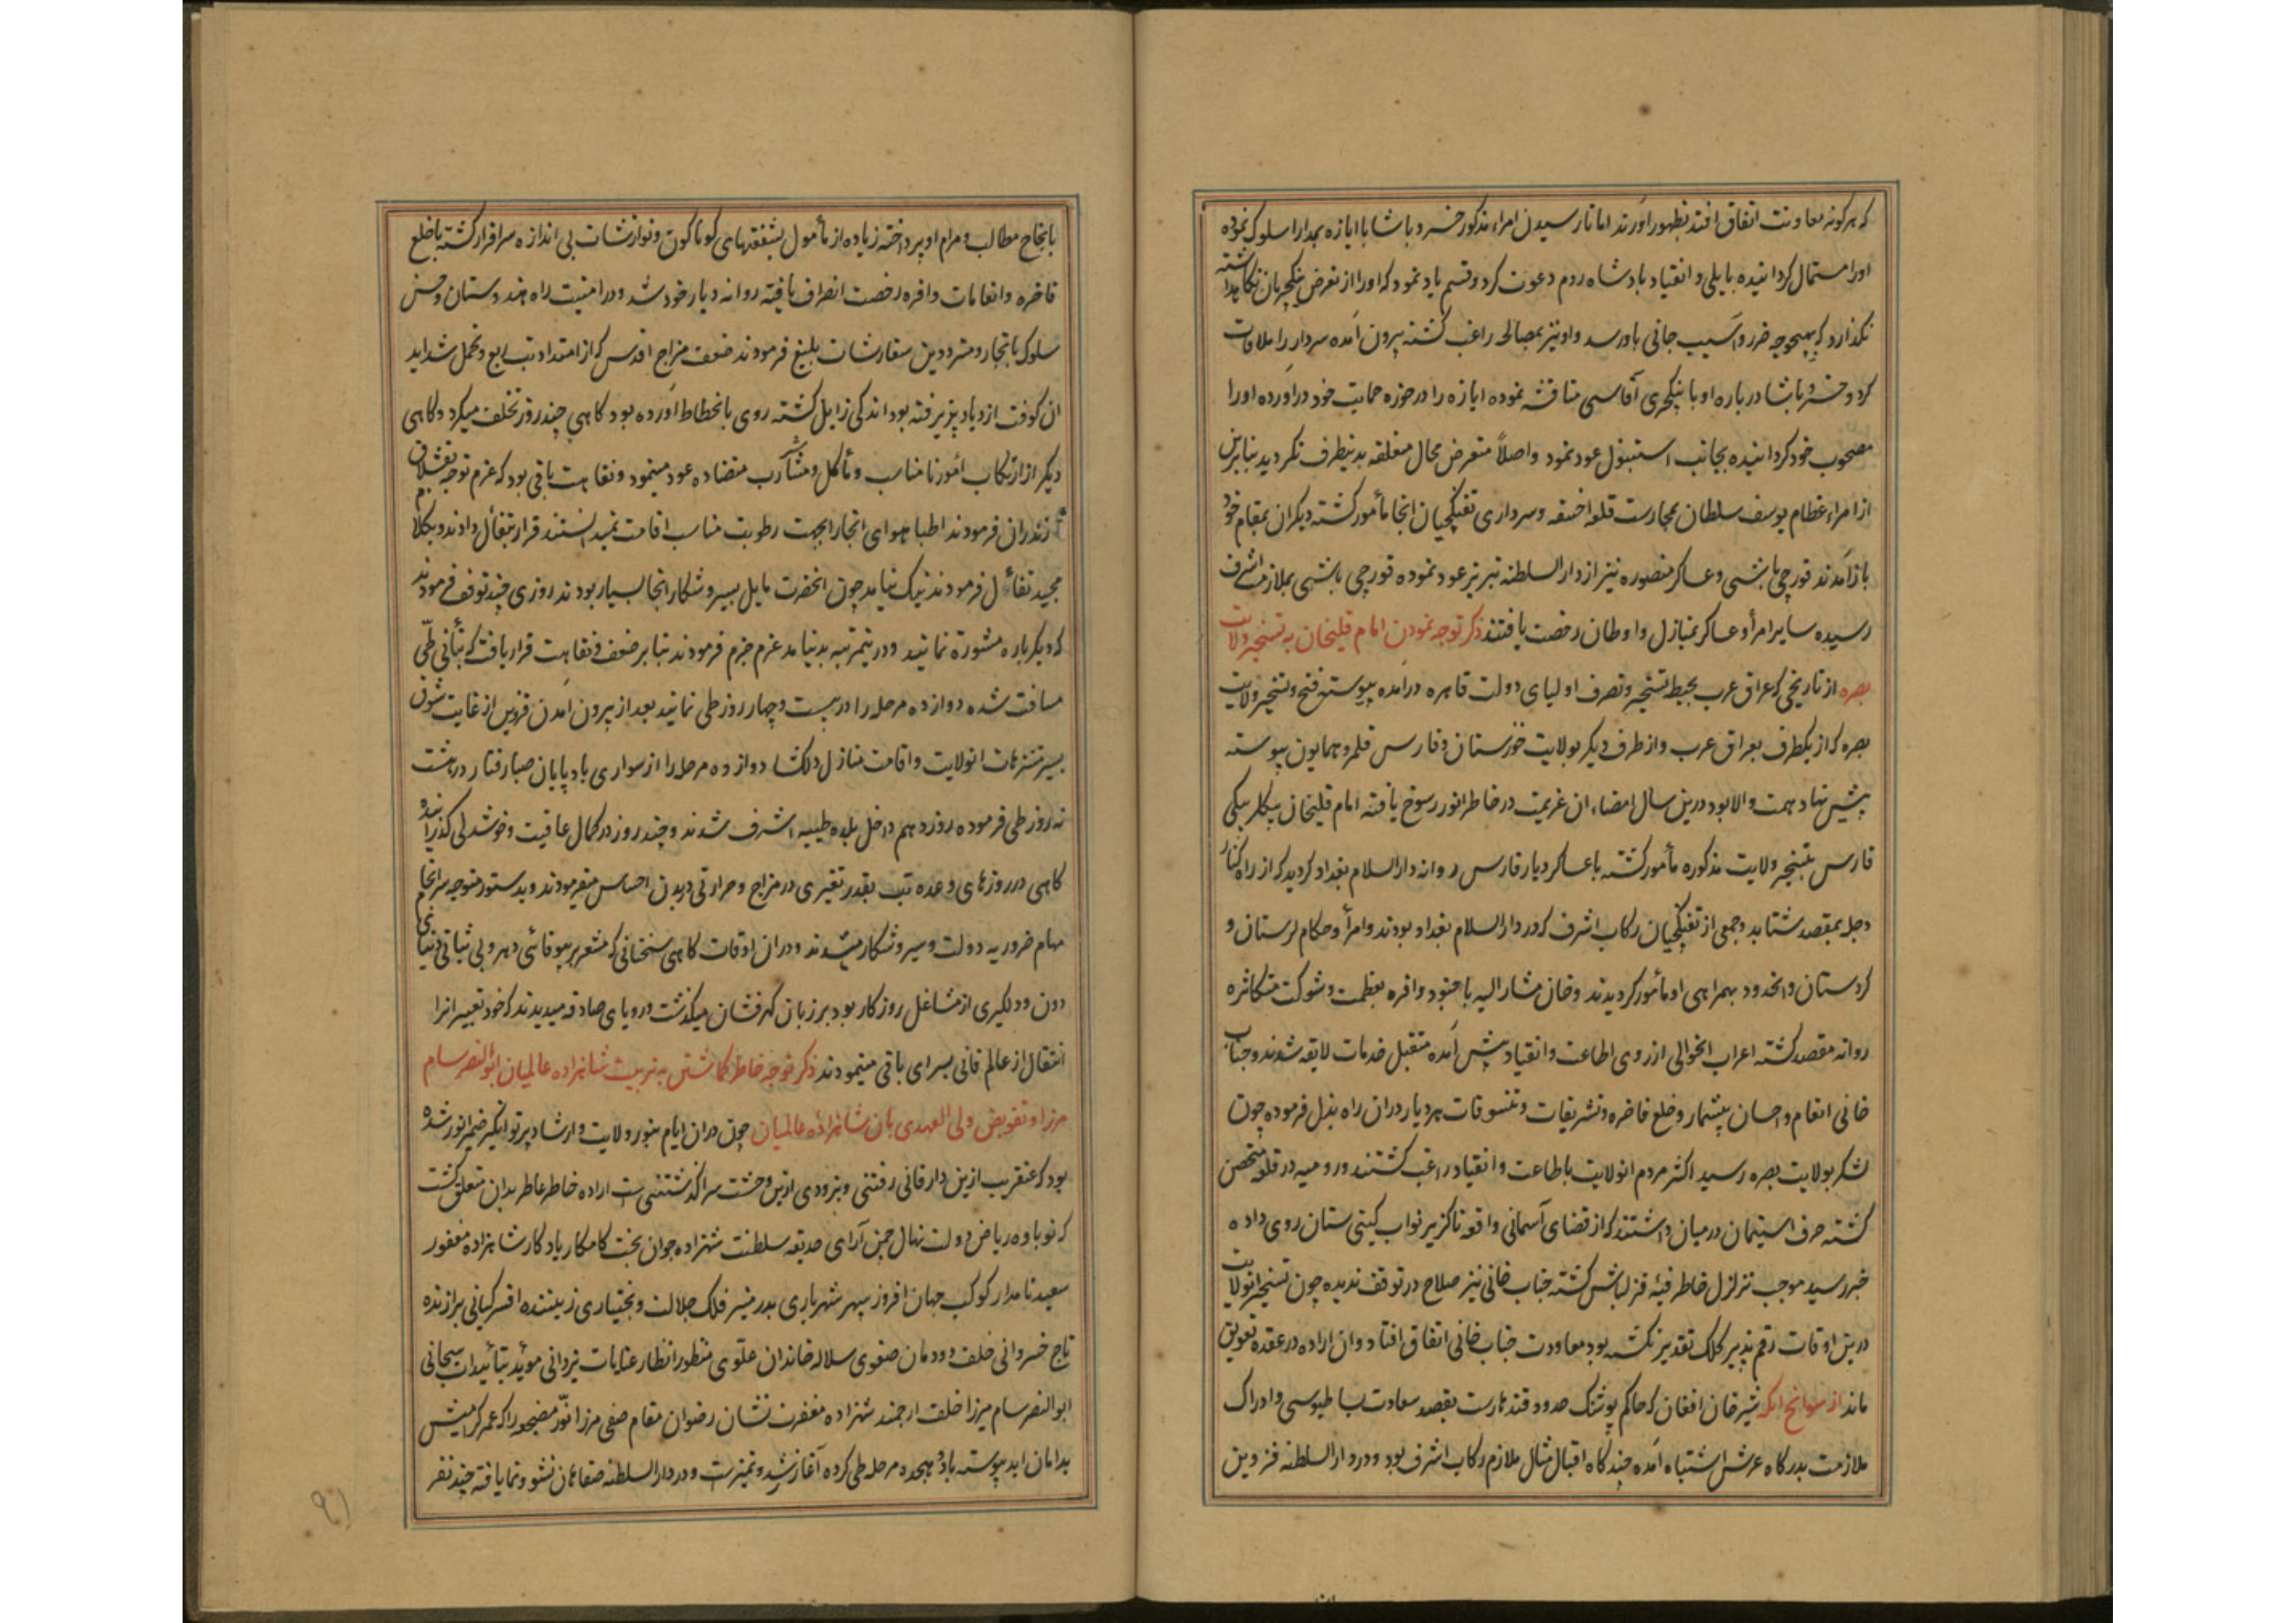 که هر گونه معاونت اتفاق افتد بظهور آورند اما تا رسیدن امراء مذکور خسرو پاشا با ابازه بمدارا سلوک نموده
اورا مستمال کردانیده بایلی و انقیاد پادشاه روم دعوت کرد و قسم یاد نمود که اورا از تعرض ینکچریان نکاهداشته
نکذارد که بهیچوجه ضرر و آسیب جانی باو رسد و او نیز بمصالحه راغب کشته بیرون آمده سردار را ملاقات
کرد و خسرو پاشا در باره او با ینکچری آقاسی مناقشه نموده ابازه را در حوزه حمایت خود در آورده اورا
مصحوب خود کردانیده بجانب استنبول عود نمود و اصلاً متعرض محال متعلقه بدینطرف نکردید بنابرین
از امراء عظام یوسف سلطان بمحارست قلعه اخسقه و سرداری تفنکچیان انجا مأمور کشته دیکران بمقام خود
باز آمدند قورچی باشی و عساکر منصوره نیز از دارالسلطنه تبریز عود نموده قورچی باشی بملازمت اشرف
رسیده سایر امرأ و عساکر بمنازل و اوطان رخصت یافتند ذکر توجه نمودن امام قلیخان به تسخیر ولایت
بصره از تاریخی که عراق عرب بحیطه تسخیر و تصرف اولیای دولت قاهره در آمده پیوسته فتح و تسخیر ولایت
بصره که از یکطرف بعراق عرب و از طرف دیکر بولایت خوزستان و فارس قلمرو همایون پیوسته
پیش نهاد همت والا بود درین سال امضاء ان عزیمت در خاطر انور رسوخ یافته امام قلیخان بیکلربیکی
فارس بتسخیر ولایت مذکوره مأمور کشته با عساکر دیار فارس روانه دارالسلام بغداد کردید که از راه کنار
دجله بمقصد شتابد و جمعی از تفنکچیان رکاب اشرف که در دارالسلام بغداد بودند و امرأ و حکام لرستان و
کردستان و انحدود بهمراهی او مأمور کردیدند و خان مشار الیه با جنود وافره بعظمت و شوکت متکاثره
روانه مقصد کشته اعراب انحوالی از روی اطاعت و انقیاد پیش آمده متقبل خدمات لایقه شدند و جناب
خانی انعام و احسان بیشمار و خلع فاخره و تشریفات و تنسوقات هر دیار در ان راه بذل فرموده چون
لشکر بولایت بصره رسید اکثر مردم انولایت باطاعت و انقیاد راغب کشتند و رومیه در قلعه متحصن
کشته حرف استیمان در میان داشتند که از قضای آسمانی واقعه ناکزیر نواب کیتی ستان روی داده
خبر رسید موجب تزلزل خاطر فیئه قزلباش کشته جناب خانی نیز صلاح در توقف ندیده چون تسخیر انولایت
درین اوقات رقم پذیر کلک تقدیر نکشته بود معاودت جناب خانی اتفاق افتاد و ان اراده در عقده تعویق
ماند از سوانح انکه شیرخان افغان که حاکم پوشنک حدود قندهارست بقصد سعادت بساطبوسی و ادراک
ملازمت بدرکاه عرش اشتباه آمده چند کاه اقبال مثال ملازم رکاب اشرف بود و در دارالسلطنه قزوین
بانجاح مطالب و مرام او پرداخته زیاده از مأمول بشفقتهای کوناکون و نوازشات بی اندازه سرافراز کشته باخلع
فاخره و انعامات وافره رخصت انصراف یافته روانه دیار خود شد و در امنیت راه هندوستان و حسن
سلوک باتجار و مترددین سفارشات بلیغ فرمودند ضعف مزاج اقدس که از امتداد تب ربع و تحمل شداید
ان کوفت ازدیاد پذیرفته بود اندکی زایل کشته روی بانحطاط آورده بود کاهی چند روز تخلف میکرد و کاهی
دیکر از ارتکاب امور نا مناسب و مأکل و مشارب متضاده عود مینمود و نقاهت باقی بود که عزم توجه بقشلاق
مازندران فرمودند اطبا هوای انجا را بجهت رطوبت مناسب اقامت نمیدانستند قرار بتفأل دادند و بکلام
مجید تفأل فرمودند نیک نیامد چون انحضرت مایل بسیر و شکار انجا بسیار بودند روزی چند توقف فرمودند
که دیکر باره مشورة نمایند و در ینمرتبه بد نیامد عزم جزم فرمودند بنابر ضعف و نقاهت قرار یافت که بتأنی طی
مسافت شده دوازده مرحله را در بیست و چهار روز طی نمایند بعد از بیرون آمدن قزوین از غایت شوق
بسیر متنزهات انولایت و اقامت منازل دلکشا دوازده مرحله را از سواری باد پایان صبا رفتار در هشت
نه روز طی فرموده روز دهم داخل بلده طیبه اشرف شدند و چند روز در کمال عافیت و خوشدلی کذرانیده
کاهی در روزهای وعده تب بقدر تغیری در مزاج و حرارتی در بدن احساس میفرمودند و بدستور متوجه سرانجام
مهام ضروریه دولت و سیر و شکار میشدند و در ان اوقات کاهی سخنانی که مشعر بر بیوفائی دهر و بی ثباتی دنیای
دون و دلکیری از مشاغل روزکار بود بر زبان کهرفشان میکذشت و رویای صادقه میدیدند که خود تعبیر انرا
انتقال از عالم فانی بسرای باقی مینمودند ذکر توجه خاطر کماشتن به تربیت شاهزاده عالمیان ابو النصر سام
مرزا و تفویض ولی العهدی بان شاهزاده عالمیان چون در ان ایام بنور ولایت و ارشاد پرتو انکیز ضمیر انور شده
بود که عنقریب ازین دار فانی رفتنی و بزودی ازین وحشت سرا کذشتنی ست اراده خاطر عاطر بدان متعلق کشت
که نوباوه ریاض دولت نهال چمن آرای حدیقه سلطنت شهزاده جوان بخت کامکار یادکار شاهزاده مغفور
سعید نامدار کوکب جهان افروز سپهر شهریاری بدر منیر فلک جلالت و بختیاری زیبنده افسر کیانی برازنده
تاج خسروانی خلف دودمان صفوی سلاله خاندان علوی منظور انظار عنایات یزدانی موید بتائیدات سبحانی
ابوالنصر سام میرزا خلف ارجمند شهزاده مغفرت نشان رضوان مقام صفی مرزا نوّر مضجعه را که عمر کرامیش
بدامان ابد پیوسته باد هیجده مرحله طی کرده آغاز رشد و تمیزست و در دارالسلطنه صفاهان نشو و نما یافته چند نفر